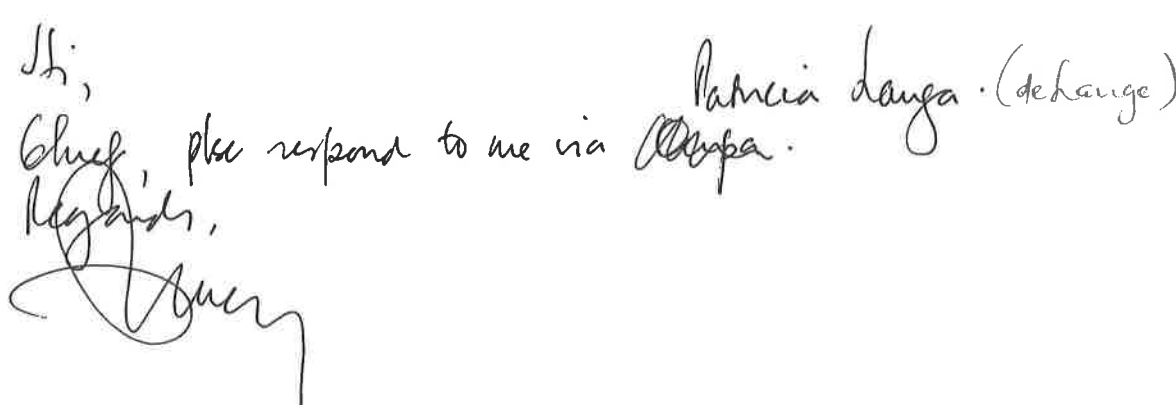 Hi,
Chief, plse respond to me via
Patricia Langa. (deLange)
Regards,